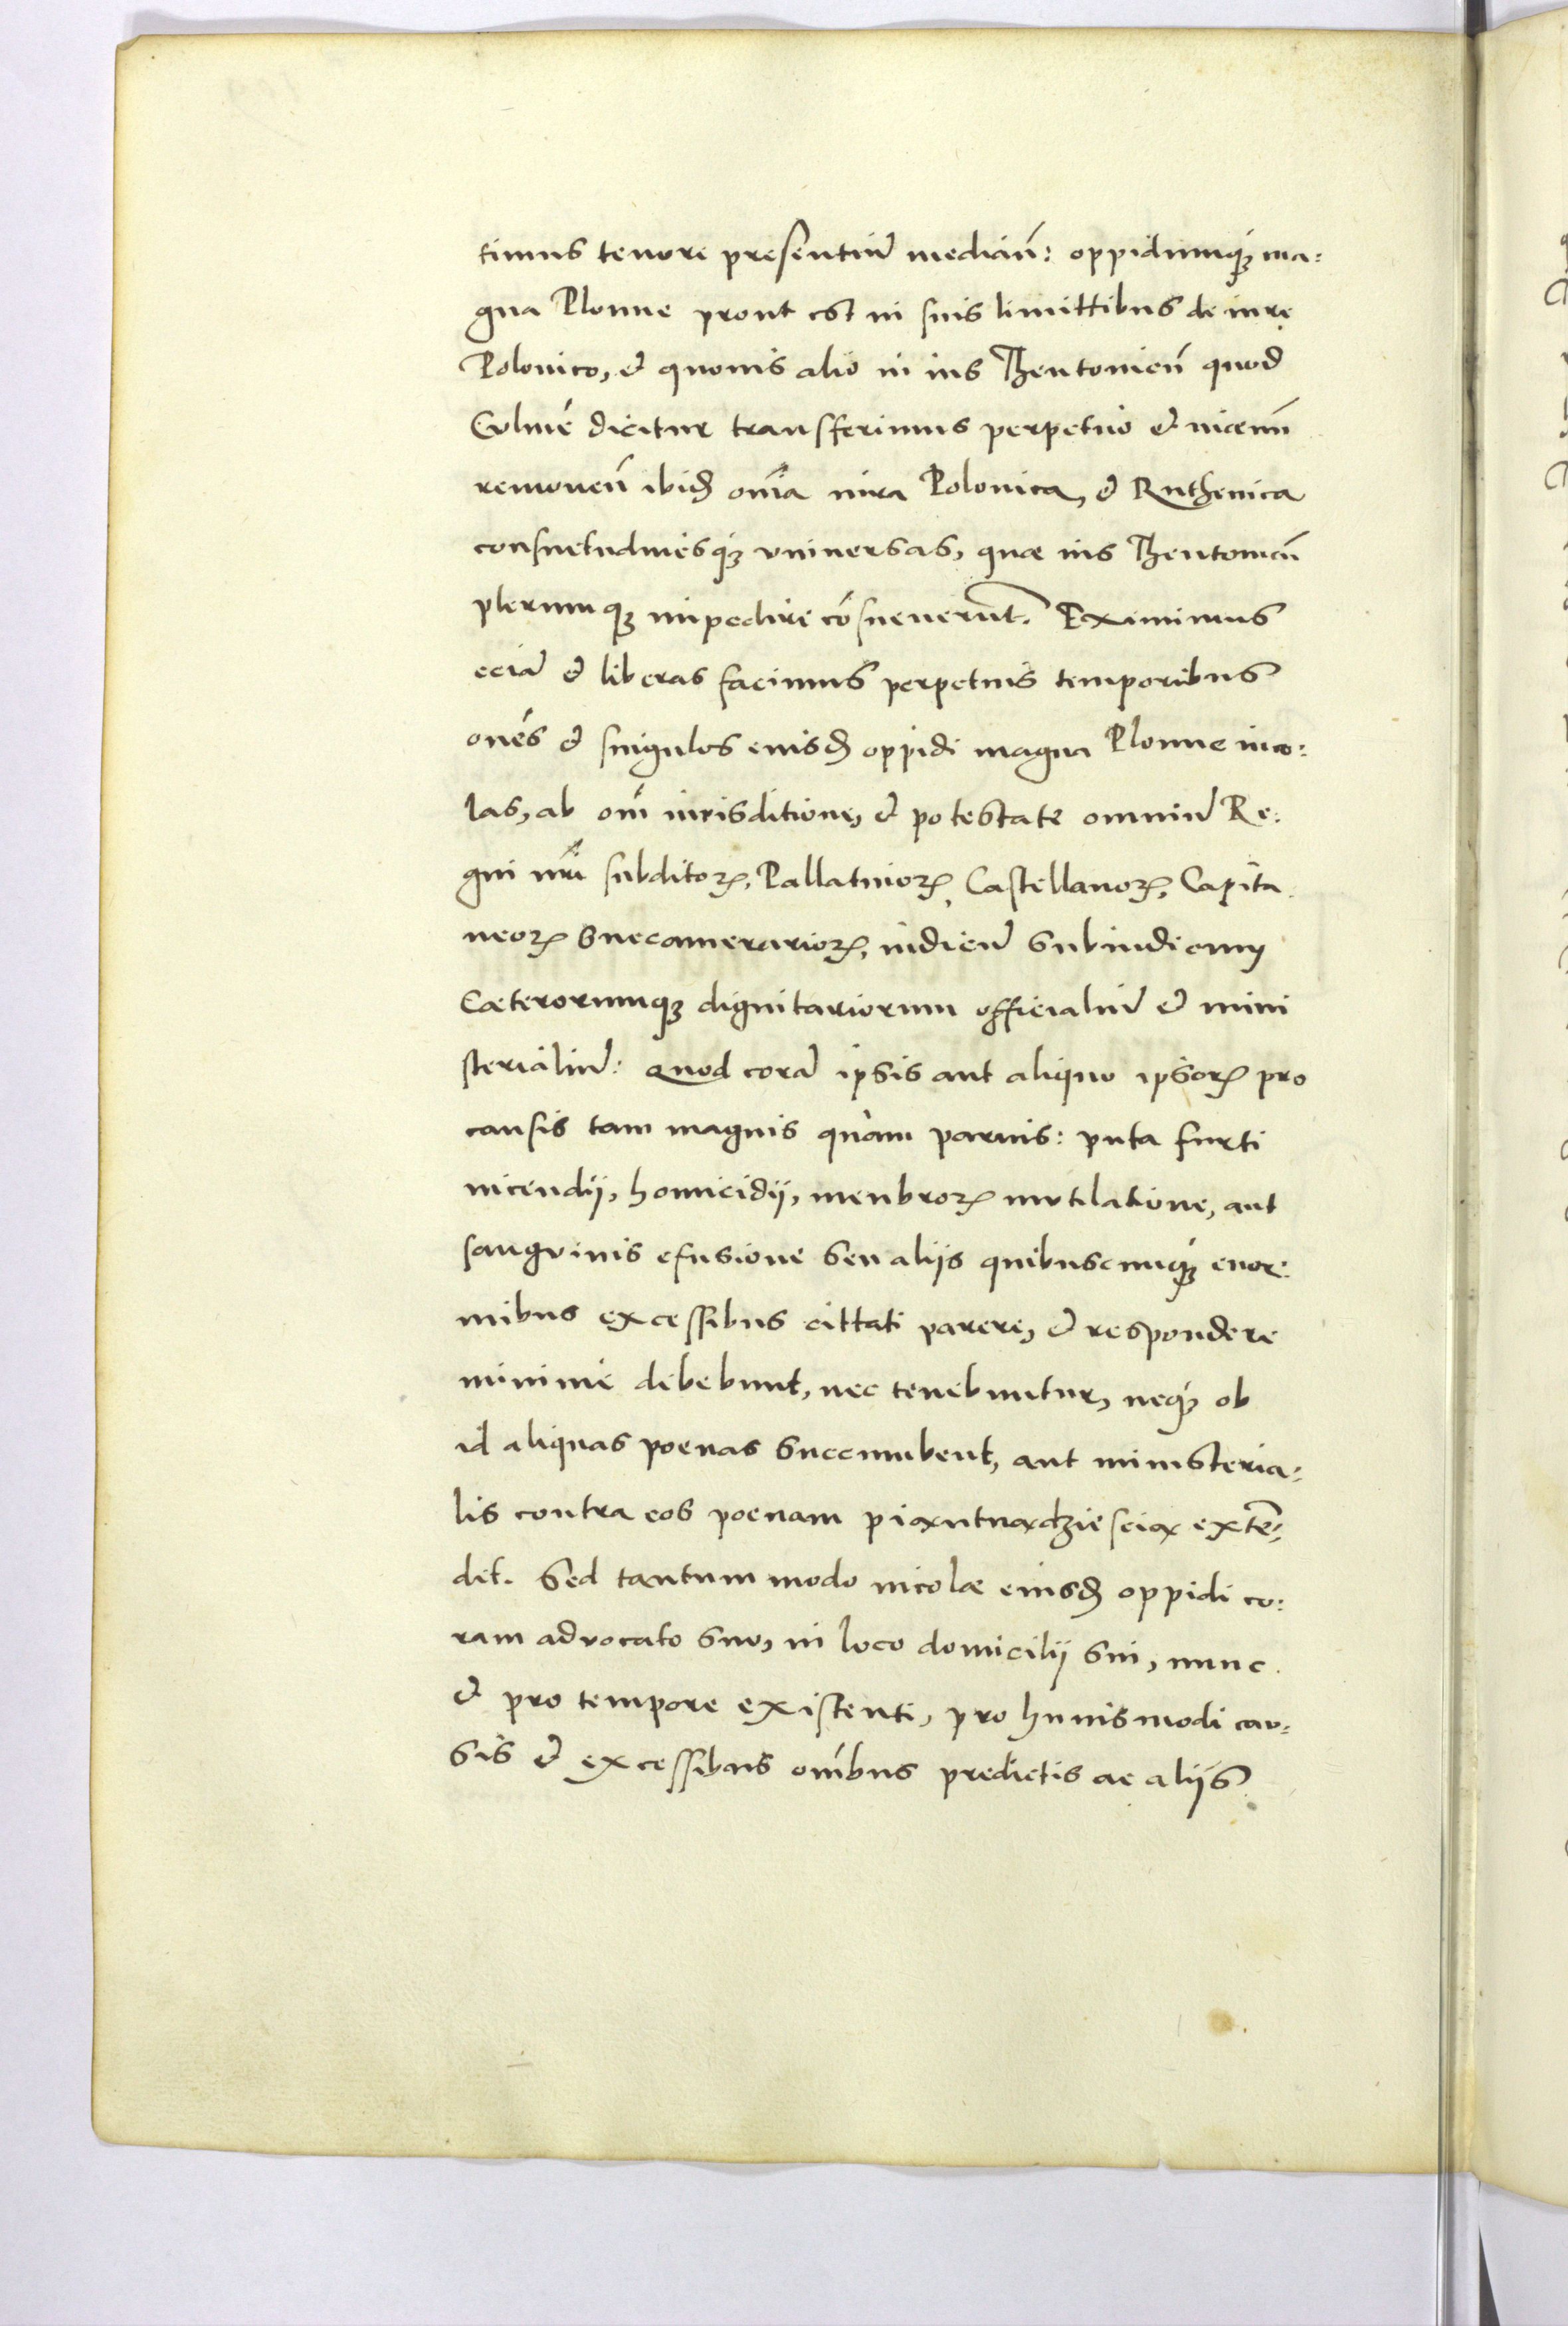 timus tenore presentiu᷄ median̄: oppidumq̷ ma:
gna Plonne prout est in suis limittibus de iure
Polonico, et quouis alio in ius Theutonicū quod
Culmē dicitur transferimus perpetuo et in ęuū
remouen̄ ibid omīa iura Polonica, et Ruthenica
consuetudinesq̷ vniuersas, quæ ius Theutonicū
plerumq̷ impedire cōsueuerūt. Eximimus
eciā et liberas facimus perpetuis temporibus
ōnes et singulos eiusd oppidi magna Plonne inco:
las, ab om̄i iurisditione, et potestate omniū Re:
gni nr̄i subditoꝝ, Pallatinioꝝ, Castellanoꝝ, Capita
neoꝝ Succamerarioꝝ, iudicū Subiudicum
Cæterorumq̷ dignitariorum officialiū et mini
sterialiū: Quod corā ipsis aut aliquo ipsoꝝ pro
causis tam magnis quàm paruis: puta furti
incendij, homicidij, menbroꝝ mutilatione, aut
sangvinis efusione seu alijs quibuscunq̷ enor:
mibus excessibus cittati parere, et respondere
minime debebunt, nec tenebuntur, neq̷ ob
id aliquas poenas succumbent, aut ministeria:
lis contra eos poenam piąntnądziescią extē:
det. Sed tantummodo incolæ eiusd oppidi co:
ram advocato suo, in loco domicilij sui, nunc
et pro tempore existenti, pro huiusmodi cau:
sis et excessibus om̄ibus predictis ac alijs